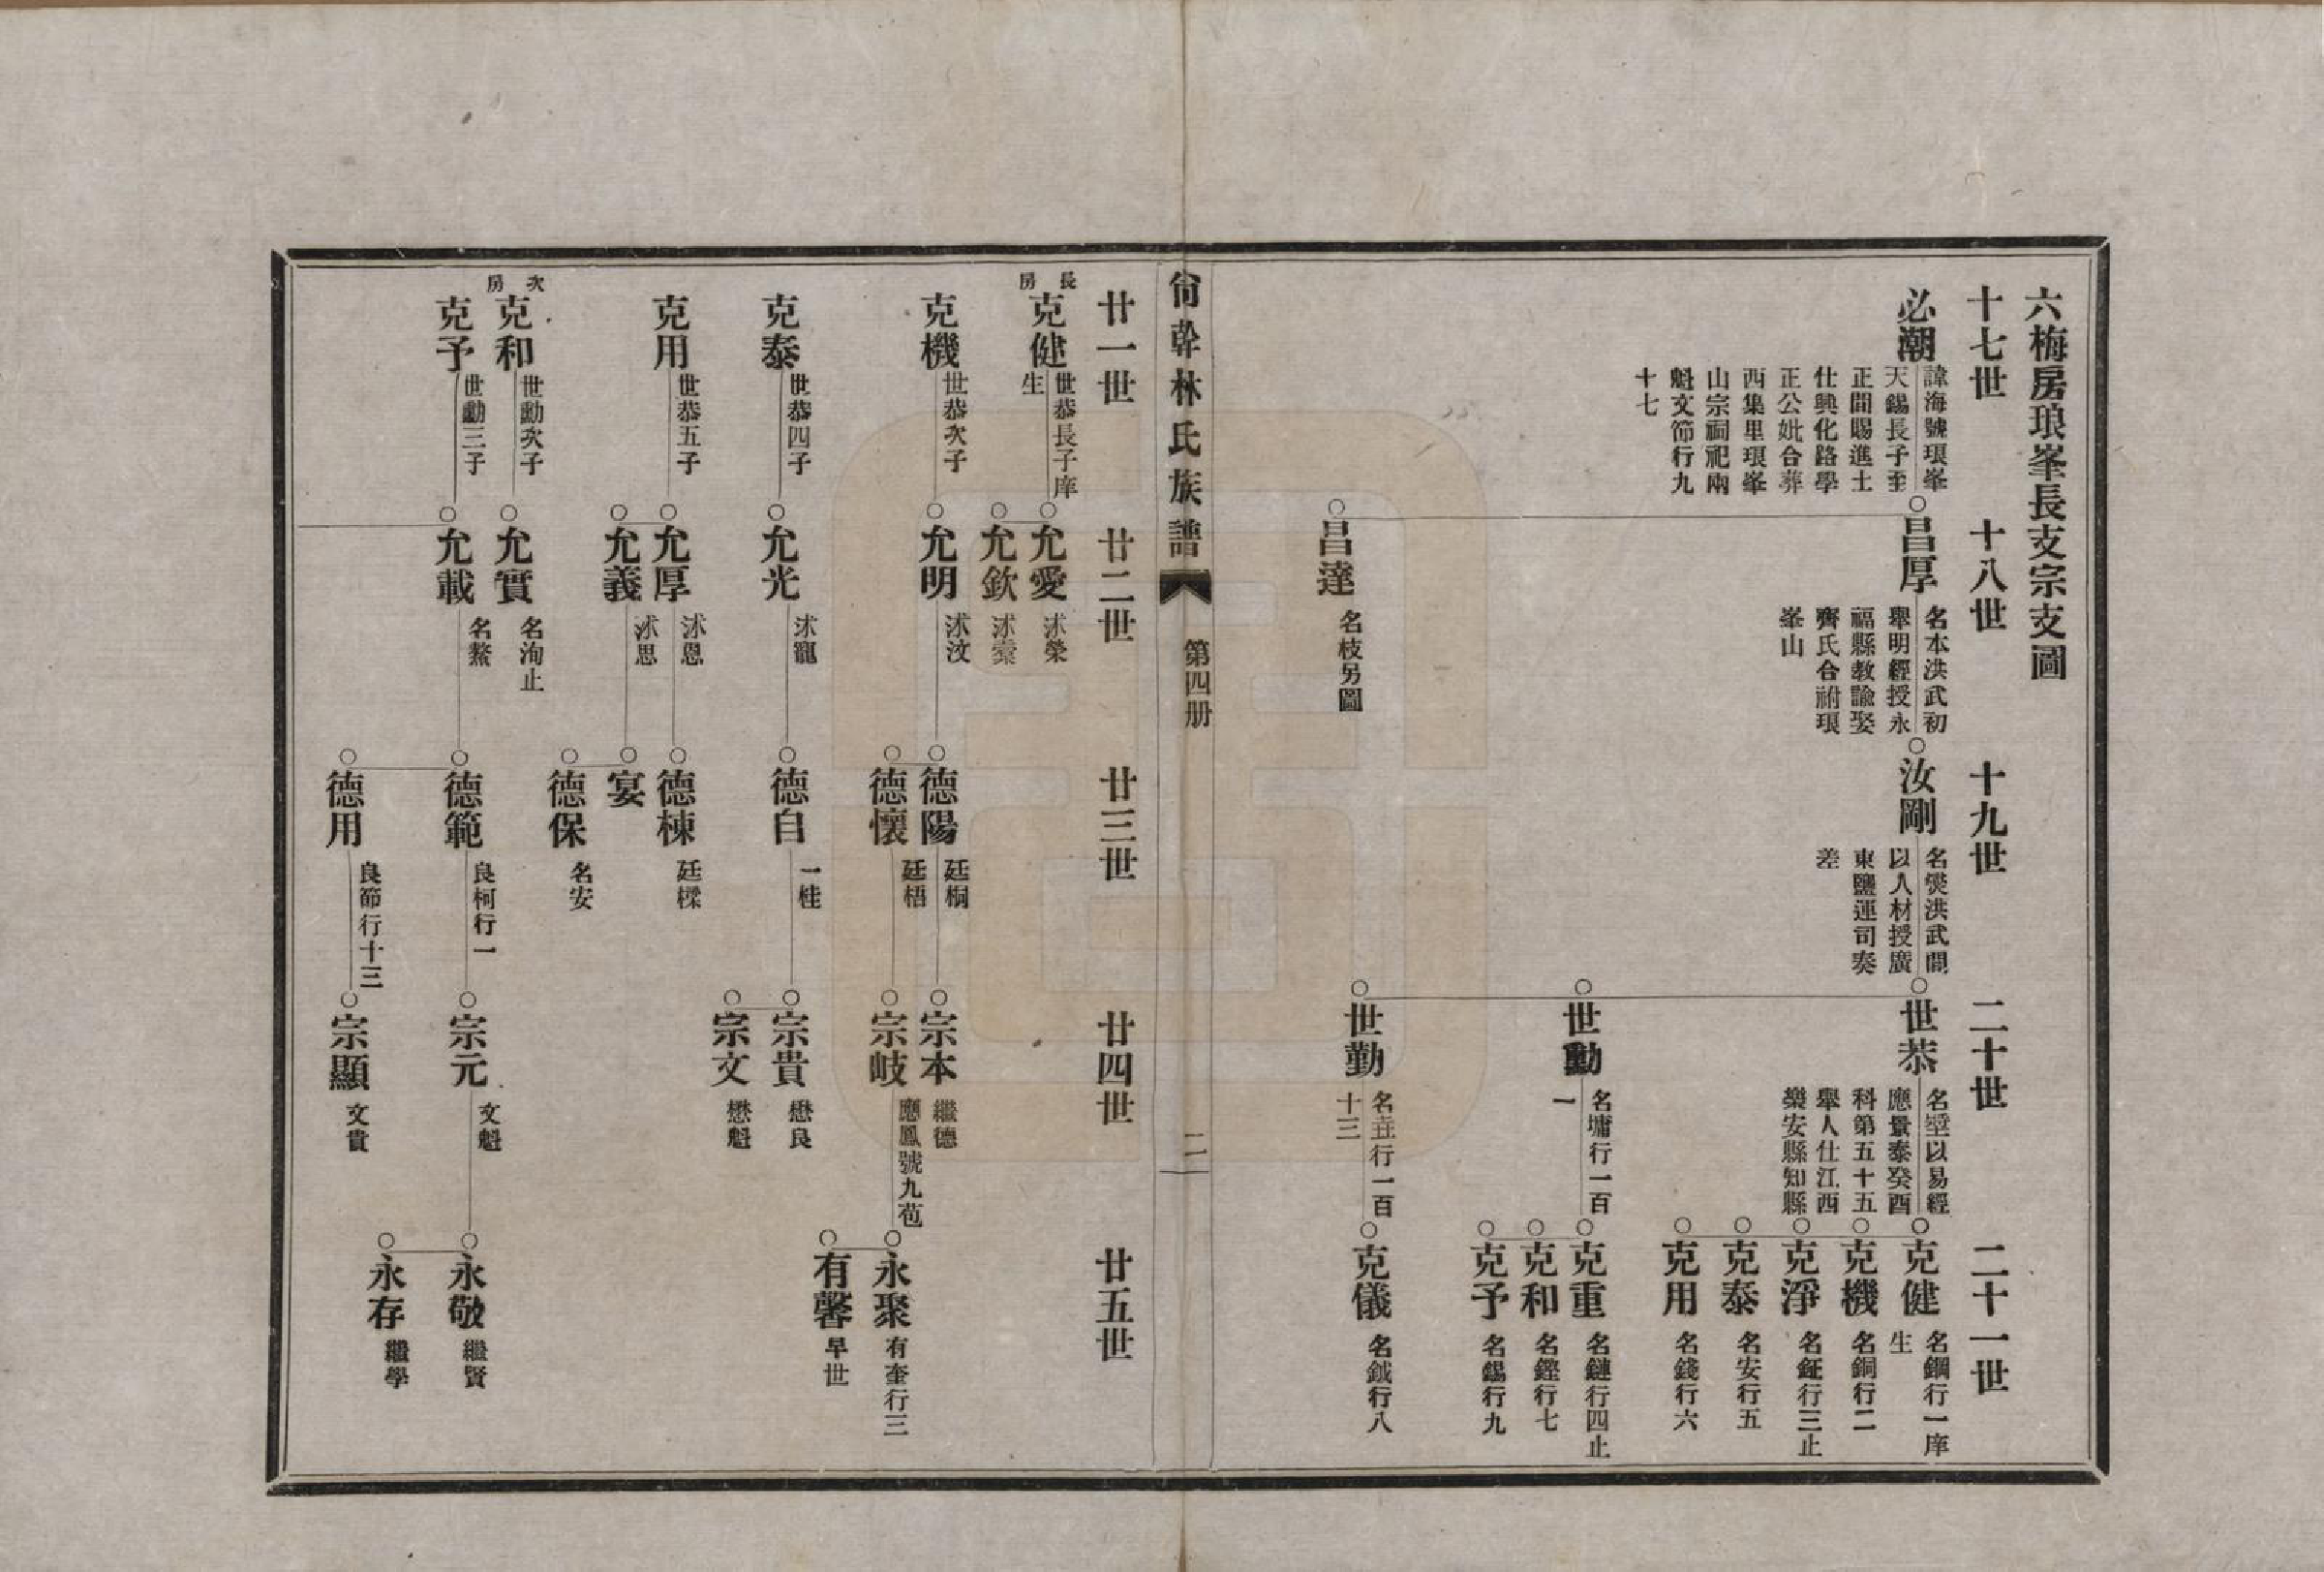 六梅房琅峯長支宗支圖
十七世
十八世
十九世
二十世
二十一世
必潮
諱海號琅峯
天錫長子至
正間賜進士
仕興化路學
正公妣合葬
西集里琅峯
山宗祠祀兩
魁文節行九
十七
昌厚
名本洪武初
舉明經授永
福縣教諭娶
齊氏合祔琅
峯山
汝剛
名熒洪武間
以人材授廣
東鹽運司奏
差
世恭
名堊以易經
應景泰癸酉
科第五十五
舉人仕江西
樂安縣知縣
克健
名鋼行一庠
生
克機
名銅行二
克淨
名鉦行三止
克泰
名安行五
克用
名錢行六
世勳
名墉行一百
一
克重
名鏈行四止
克和
名鏗行七
克予
名錫行九
昌達
名枝另圖
世勤
行一百
十三
克儀
名鉞行八
尙幹林氏族譜
第四册
二
廿一世
廿二世
廿三世
廿四世
廿五世
長房
克健
世恭長子庠
生
允愛
沭榮
允欽
沭
克機
世恭次子
允明
沭汶
德陽
廷桐
宗本
繼德
德懷
廷梧
宗岐
應鳳號九苞
永聚
有奎行三
有馨
早世
克泰
世恭四子
允光
沭寵
德自
一桂
宗貴
懋良
宗文
懋魁
克用
世恭五子
允厚
沭恩
德棟
廷樑
允義
沭思
宴
德保
名安
次房
克和
世勳次子
允實
名洵止
克予
世勳三子
允載
名鰲
德範
良柯行一
宗元
文魁
永敬
繼賢
永存
繼學
德用
良節行十三
宗顯
文貴